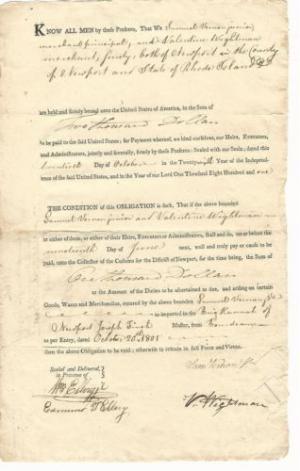 KNOW ALL MEN by these Presents, That We Samuel Vernon junior
merchant principal, and Valentine Wightman
merchant, surety, both of Newport in the County
of Newport and State of Rhode Island &c
are held and firmly bound unto the United States of America, in the Sum of
Two thousand Dollars
to be paid to the said United States; for Payment whereof, we bind ourselves, our Heirs, Executors,
and Administrators, jointly and severally, firmly by these Presents: Sealed with our Seals; dated this
twentieth Day of October in the Twenty sixth Year of the Independence
of the said United States, and in the Year of our Lord One Thousand Eight Hundred and one
THE CONDITION of this OBLIGATION is such, That if the above bounden
Samuel Vernon junior and Valentine Wightman
or either of them, or either of their Heirs, Executors, or Administrators, shall and do, on or before the
nineteenth Day of June next, well and truly pay or cause to be
paid, unto the Collector of the Customs for the District of Newport, for the time being, the Sum of
One thousand Dollars
or the Amount of the Duties to be ascertained to be due, and arising on certain
Goods, Wares and Merchandise, entered by the above bounden Samuel Vernon Jr
as imported in the Brig
Newport Joseph Master, from
as per Entry, dated October 20th 1801
then the above Obligation to be void; otherwise to remain in full Force and Virtue.
Sealed and Delivered,
in Presence of
Sam Vernon Jr
Wm Ellery
V. Wightman
Edmund T Ellery